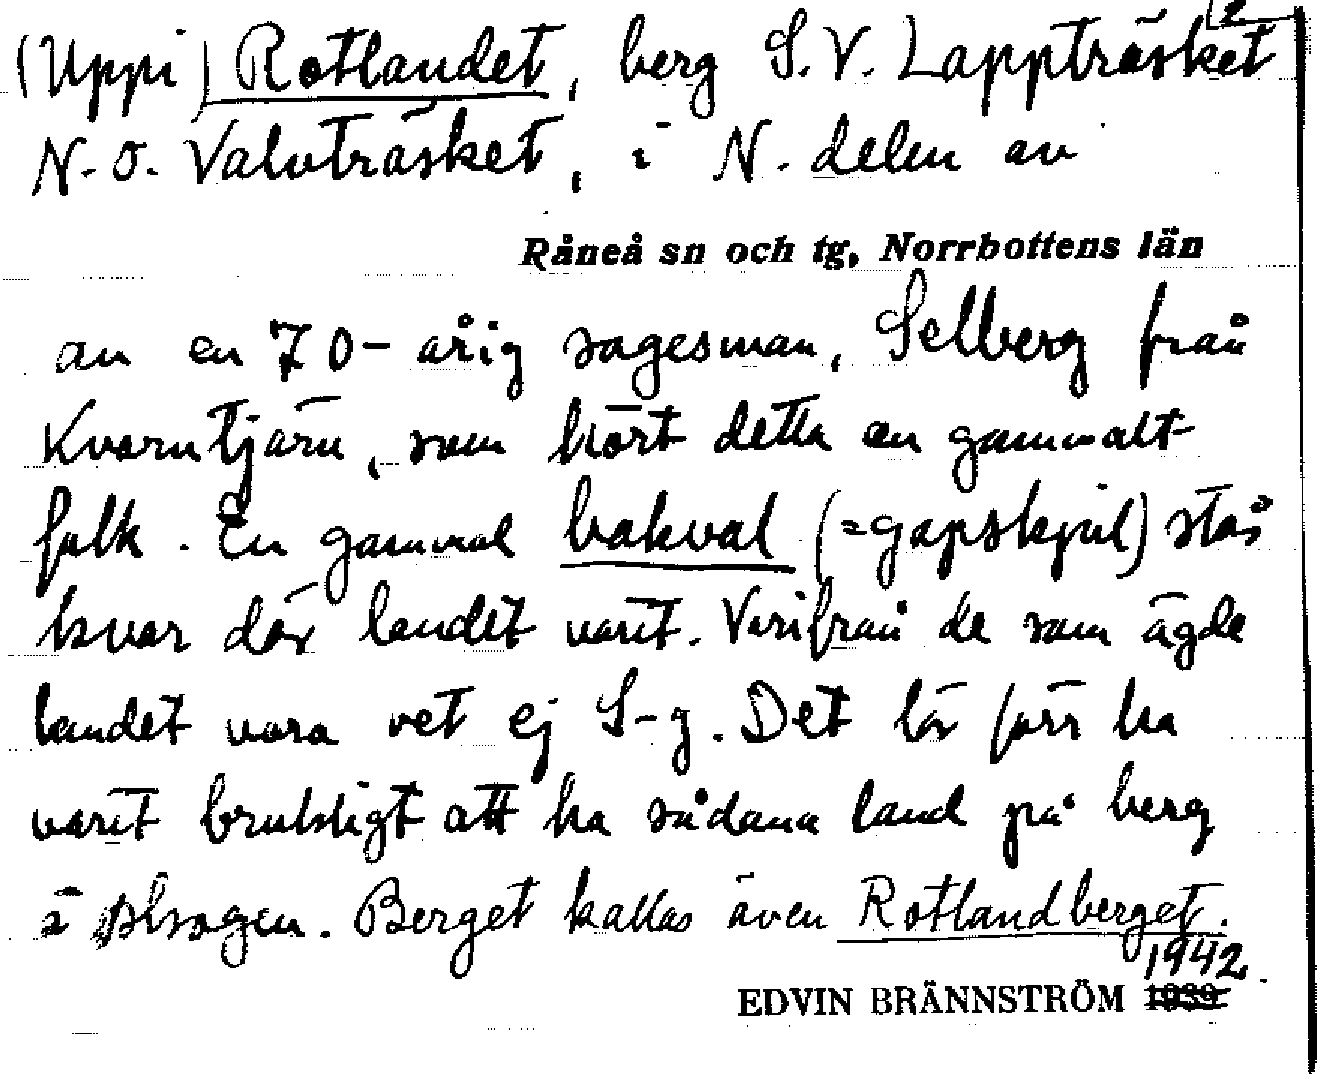 2
(Uppi) Rotlandet, berg S.V. Lappträsket
N.O. Valvträsket, i N. delen av
Råneå sn och tg, Norrbottens län
av en 70-årig sagesman, Selberg från
Kvarntjärn, som hört detta av gammalt
folk. En gammal bakval (=gapskjul) står
kvar där landet varit. Varifrån de som ägde
landet vara vet ej S-g. Det lär förr ha
varit brukligt att ha sådana land på berg
i skogen. Berget kallas även Rotlandberget.
1942
EDVIN BRÄNNSTRÖM 1939